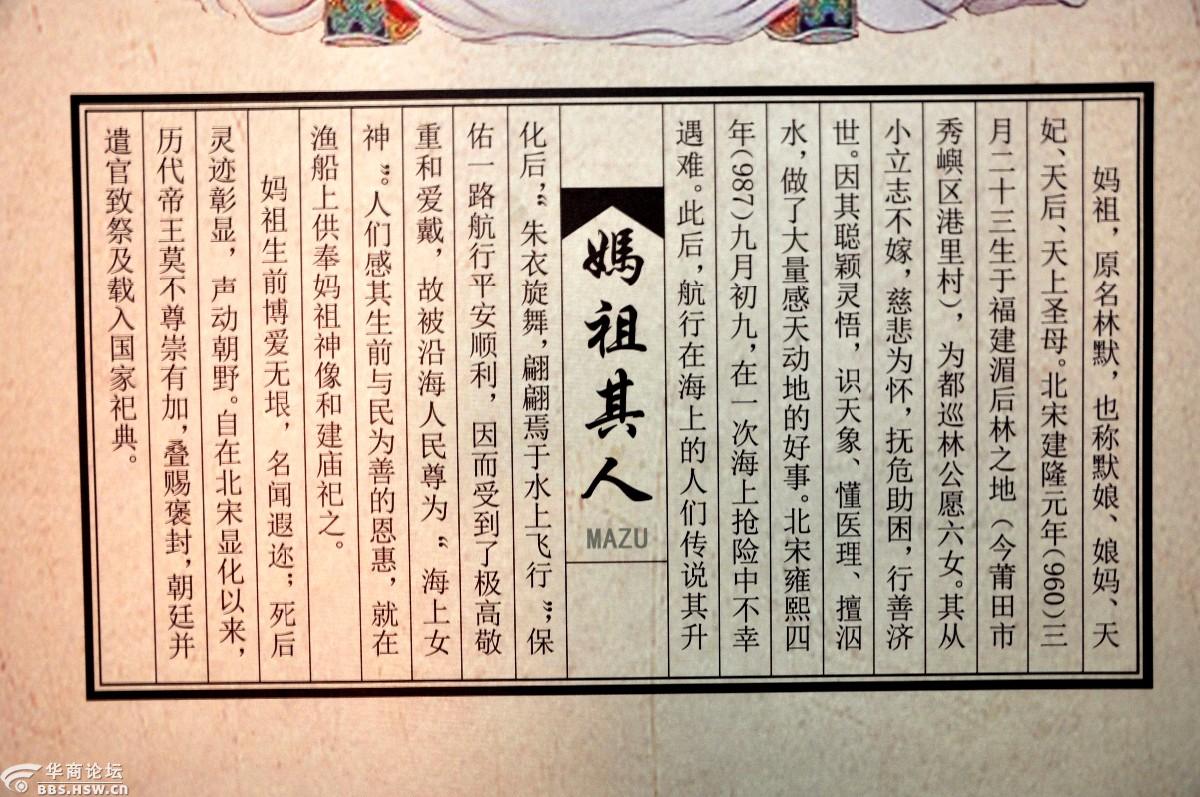 妈祖，原名林默，也称默娘、娘妈、天
妃、天后、天上圣母。北宋建隆元年(960)三
月二十三生于福建湄后林之地（今莆田市
秀嶼区港里村），为都巡林公愿六女。其从
小立志不嫁，慈悲为怀，抚危助困，行善济
世。因其聪颖灵悟，识天象、懂医理、擅泅
水，做了大量感天动地的好事。北宋雍熙四
年(987)九月初九，在一次海上抢险中不幸
遇难。此后，航行在海上的人们传说其升
媽祖其人
MAZU
化后，“朱衣旋舞，翩翩焉于水上飞行”，保
佑一路航行平安顺利，因而受到了极高敬
重和爱戴，故被沿海人民尊为“海上女
神”。人们感其生前与民为善的恩惠，就在
渔船上供奉妈祖神像和建庙祀之。
妈祖生前博爱无垠，名闻遐迩；死后
灵迹彰显，声动朝野。自在北宋显化以来，
历代帝王莫不尊崇有加，叠赐褒封，朝廷并
遣官致祭及载入国家祀典。
华商论坛
BBS.HSW.CN